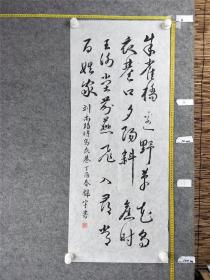 朱雀橋边野草花烏
衣巷口夕陽斜舊時
王谢堂前燕飛入尋常
百姓家 刘禹锡诗烏衣巷丁酉春